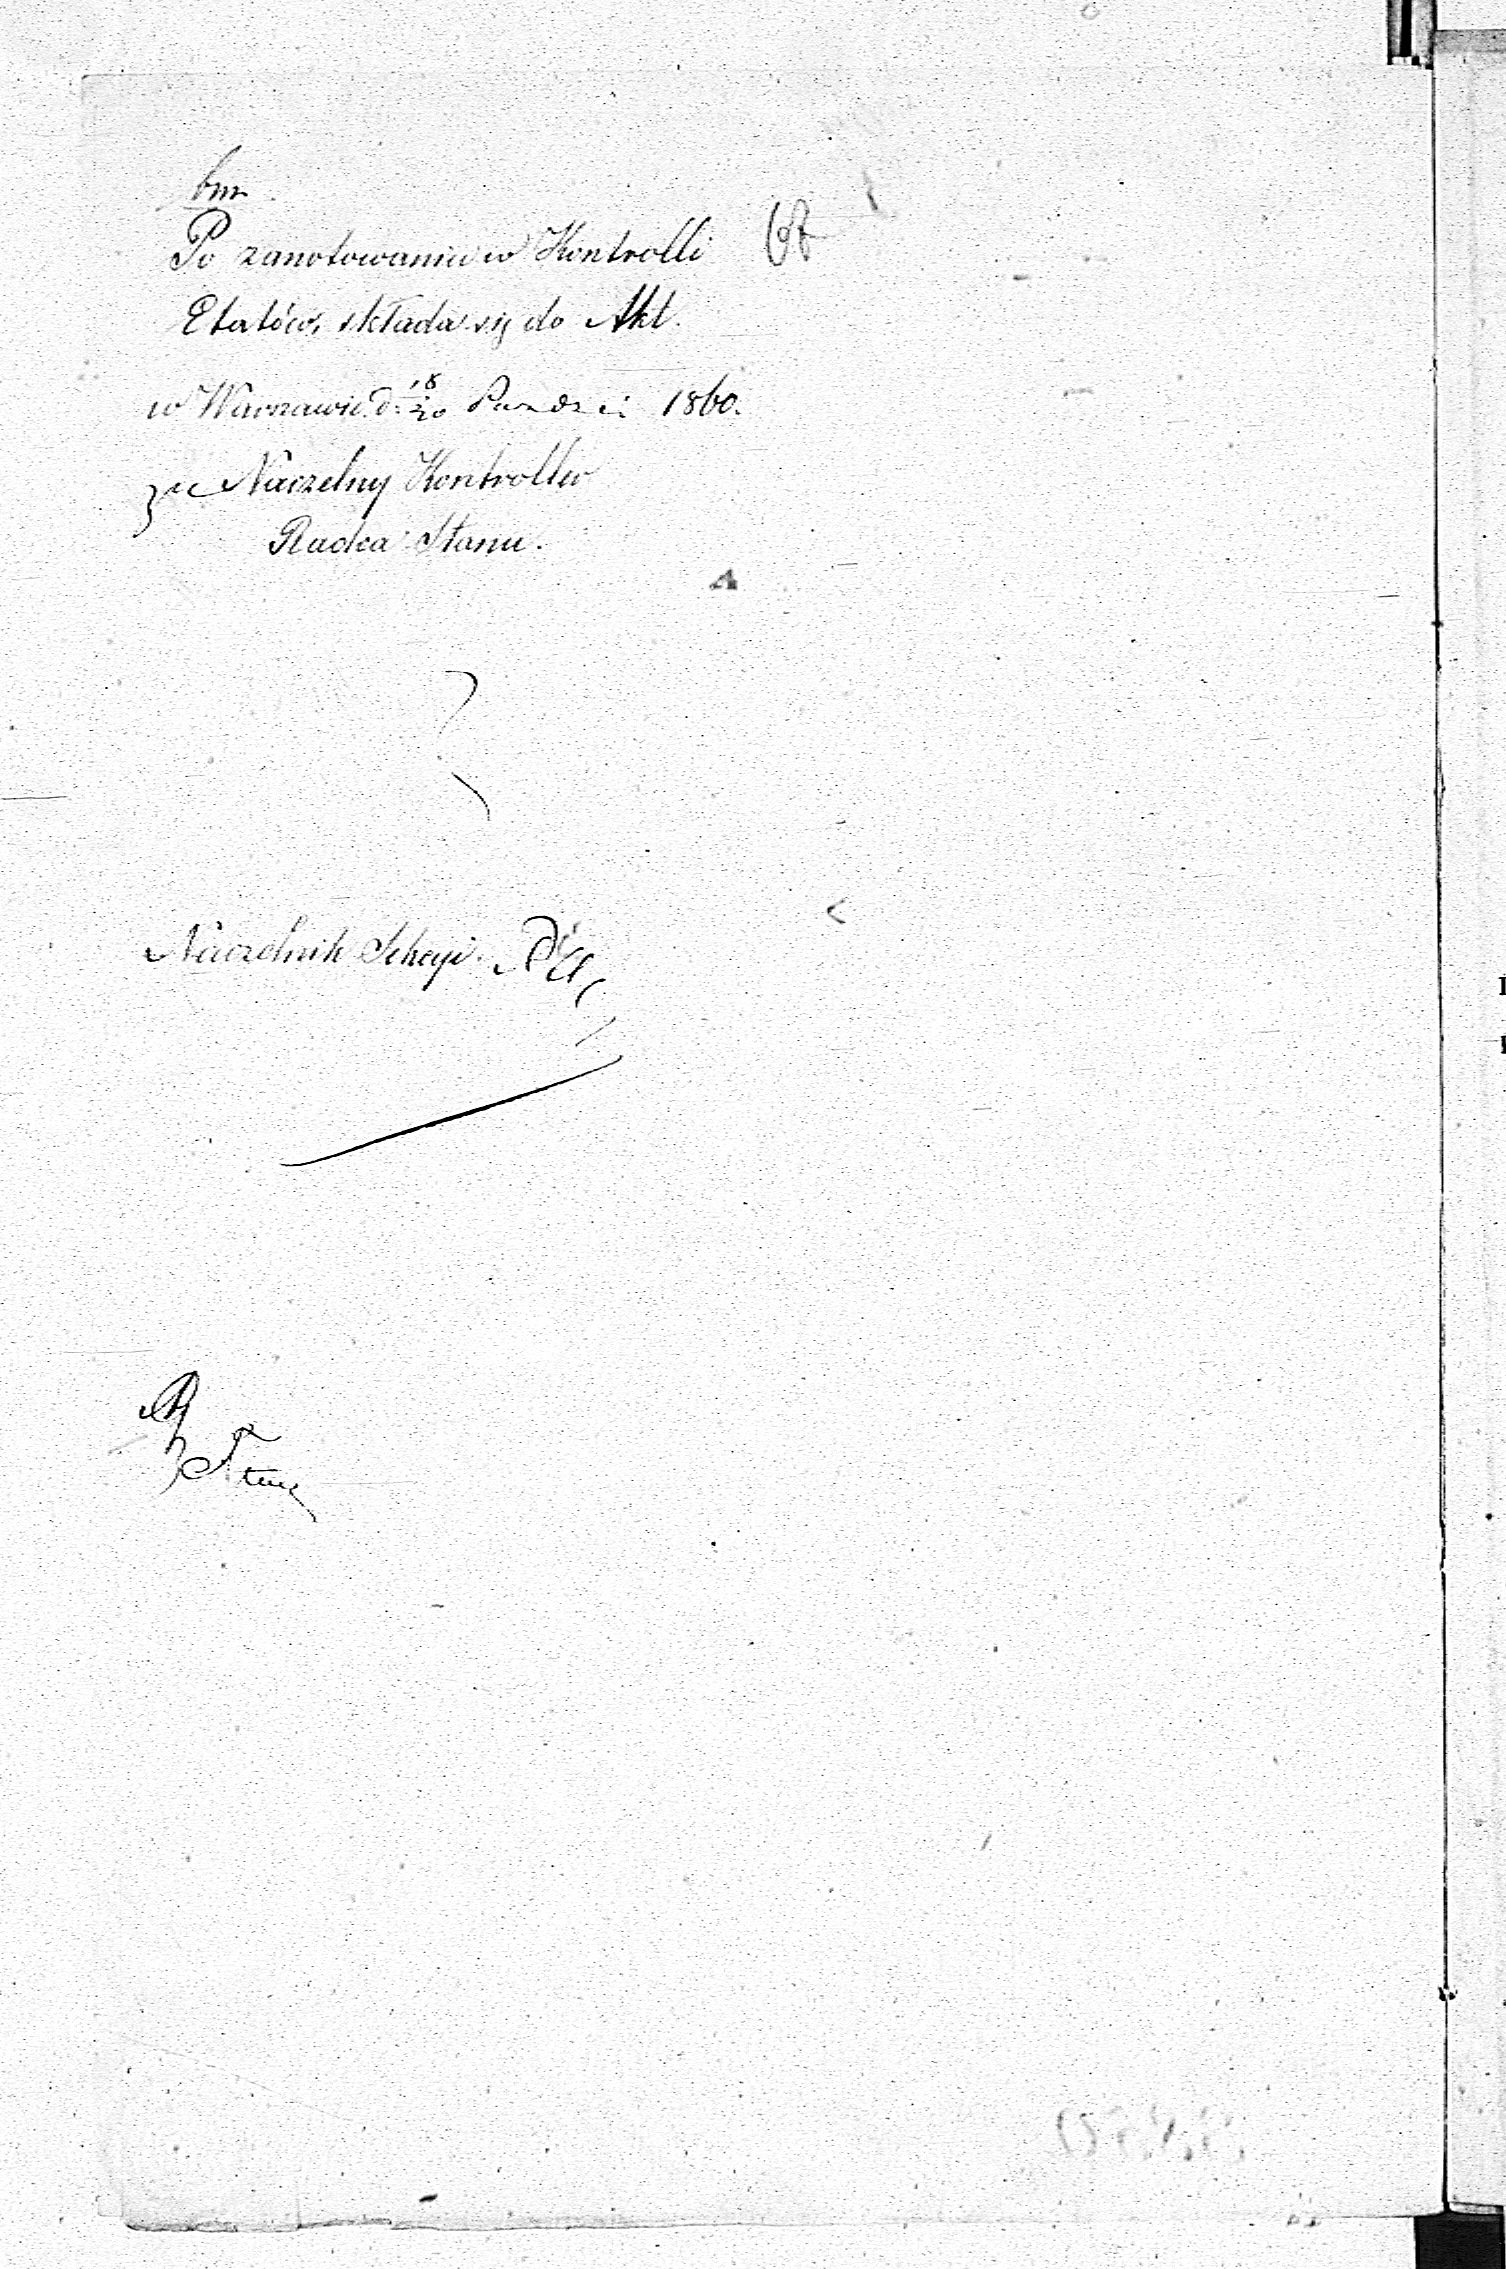 bm
Po zanotowaniu w Kontrolli 67
Etatów, składa się do Akt.
w Warszawie d. 18/30 Paźdz. 1860.
za Naczelny Kontroller
Radca Stanu.
Naczelnik Sekcyi.